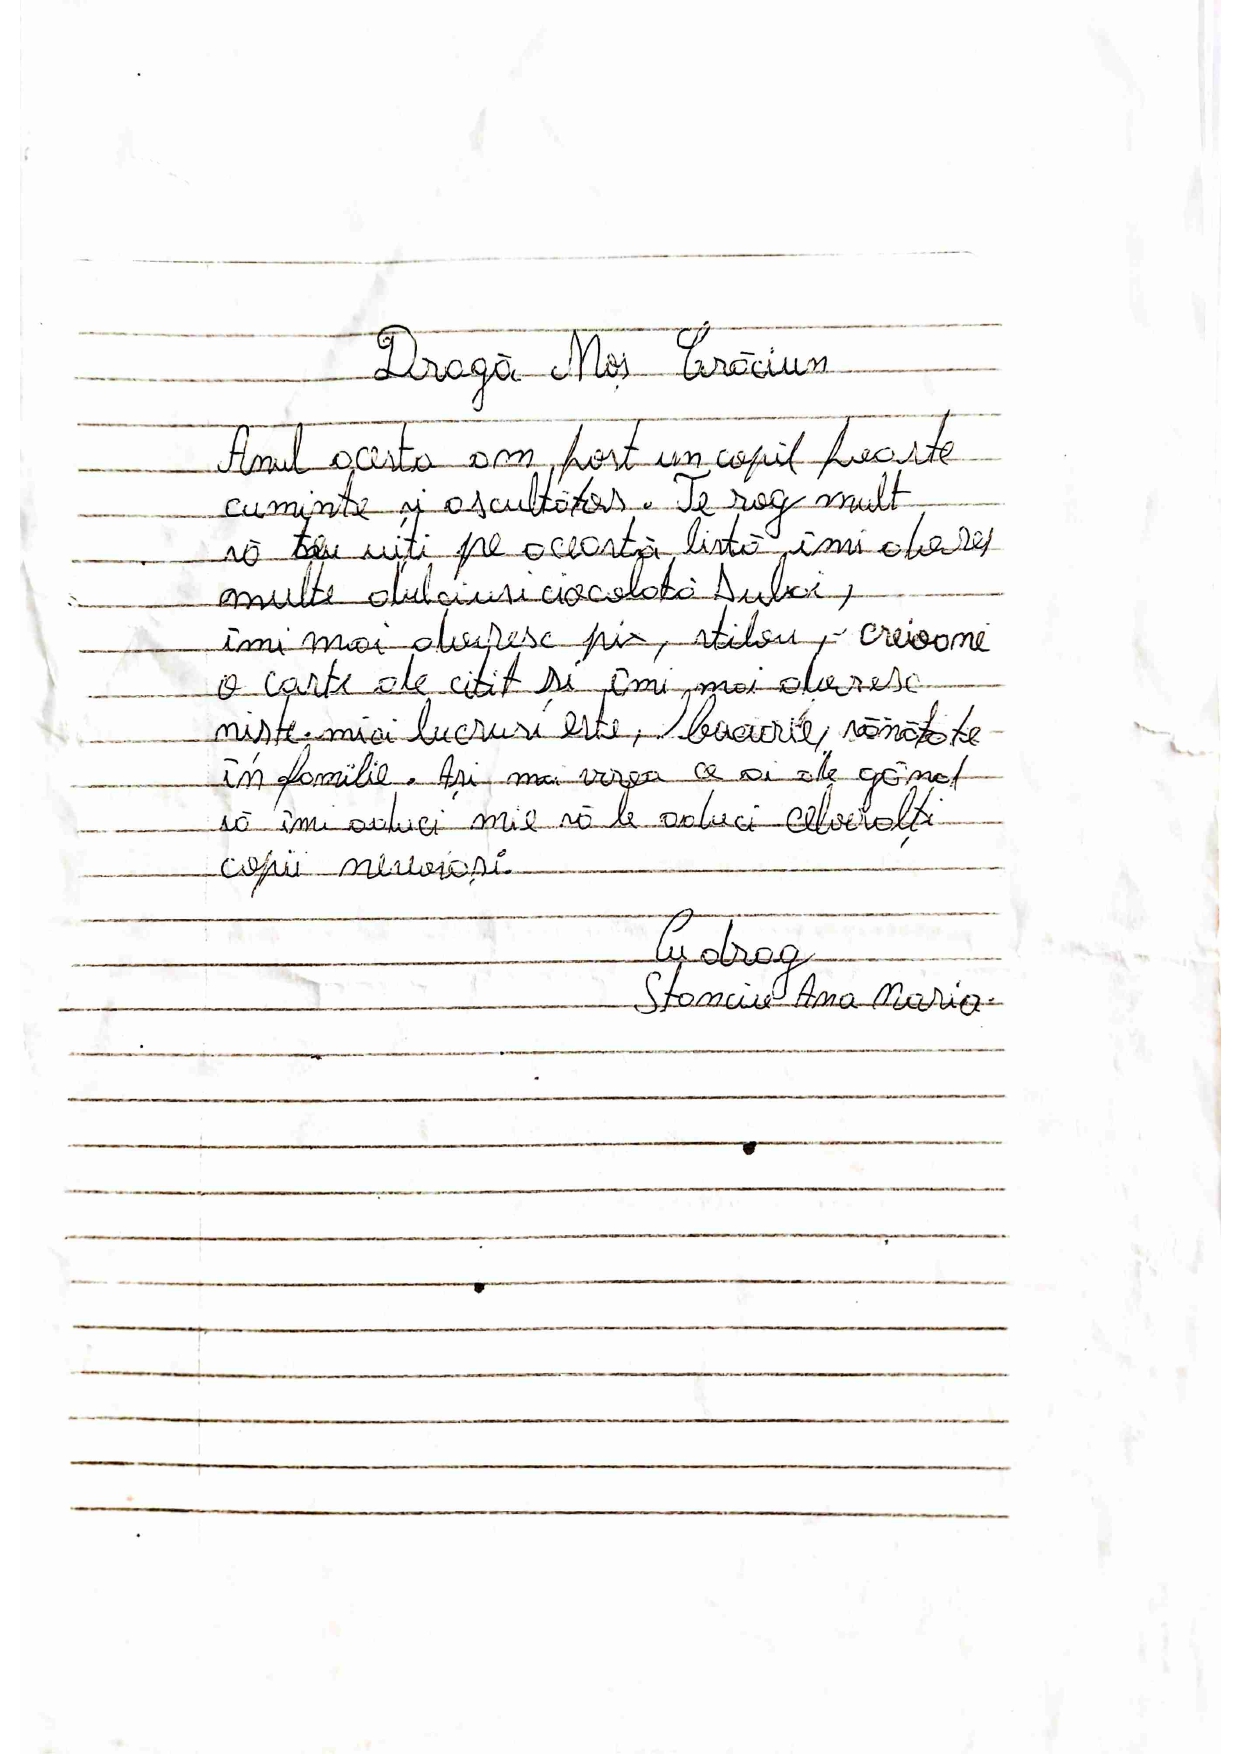 Dragă Moș Crăciun
Anul acesta am fost un copil foarte
cuminte și ascultător. Te rog mult
să te uiți pe această listă îmi doresc
multe dulciuri ciocolată Dulci,
îmi mai doresc pix, stilou, creioane
o carte de citit Și îmi mai doresc
niște mici lucruri este, bucurie, sănătate
în familie. Ași mai vrea ce ai de gând
să îmi aduci mie să le aduci celoralți
copii nevoiași.
Cu drag
Stanciu Ana Maria.